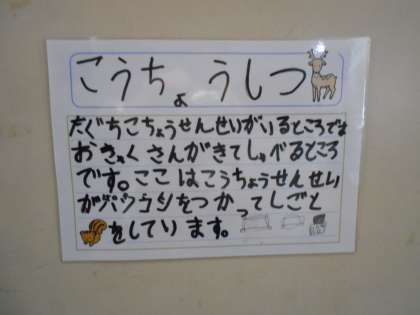 こうちょうしつ
たぐちこうちょうせんせいがいるところです
おきゃくさんがきてしゃべるところ
です。ここはこうちょうせんせい
がパソコンをつかってしごと
をしています。